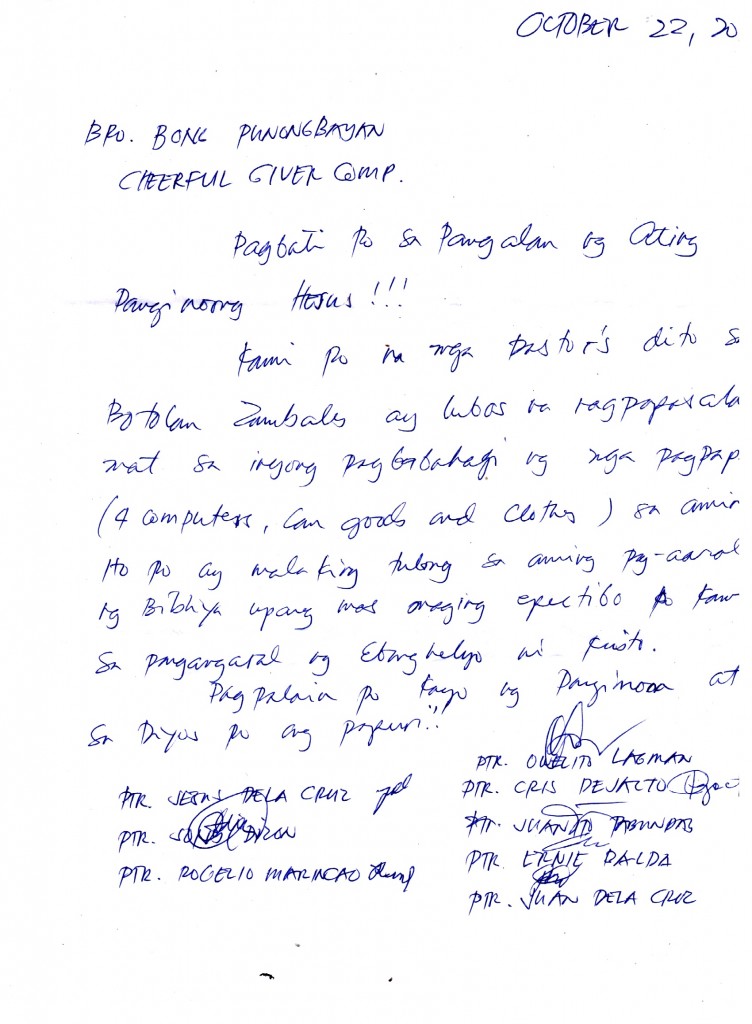 OCTOBER 22, 20
BRO. BONG PUNONGBAYAN
CHEERFUL GIVER COMP.
Pagbati po sa Pangalan ng Ating
Panginoong Hesus!!!
Kami po na mga Pastor's dito s
Botolan Zambales ay lubos na nagpapasala
mat sa inyong pagbabahagi ng mga pagpap
(4 computers, Can goods and Clothes) sa amin
Ito po ay malaking tulong sa aming pag-aaral
ng Bibliya upang mas maging epectibo po kam
sa pangangaral ng Ebanghelyo ni Kristo.
Pagpalain po kayo ng Panginoon at
sa Diyos po ang papuri!!
PTR. LAGMAN
PTR. JESUS DELA CRUZ
PTR. CRIS DEJACTO
PTR. DIZON
PTR. JUANITO
PTR. ROGELIO MARINCAO
PTR. ERNIE DALDA
PTR. JUAN DELA CRUZ